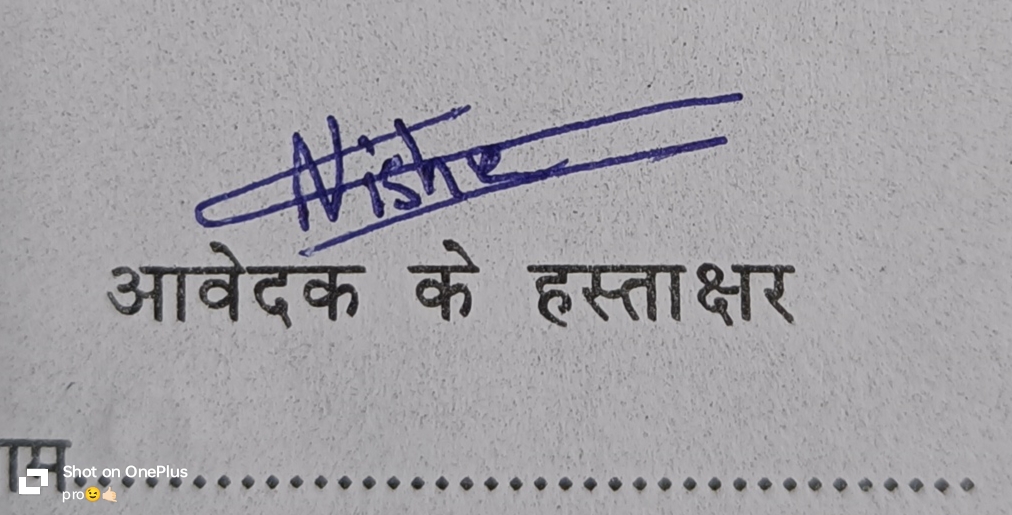 Nisha
आवेदक के हस्ताक्षर
ाम..........................................
Shot on OnePlus
pro😉🤙🏻